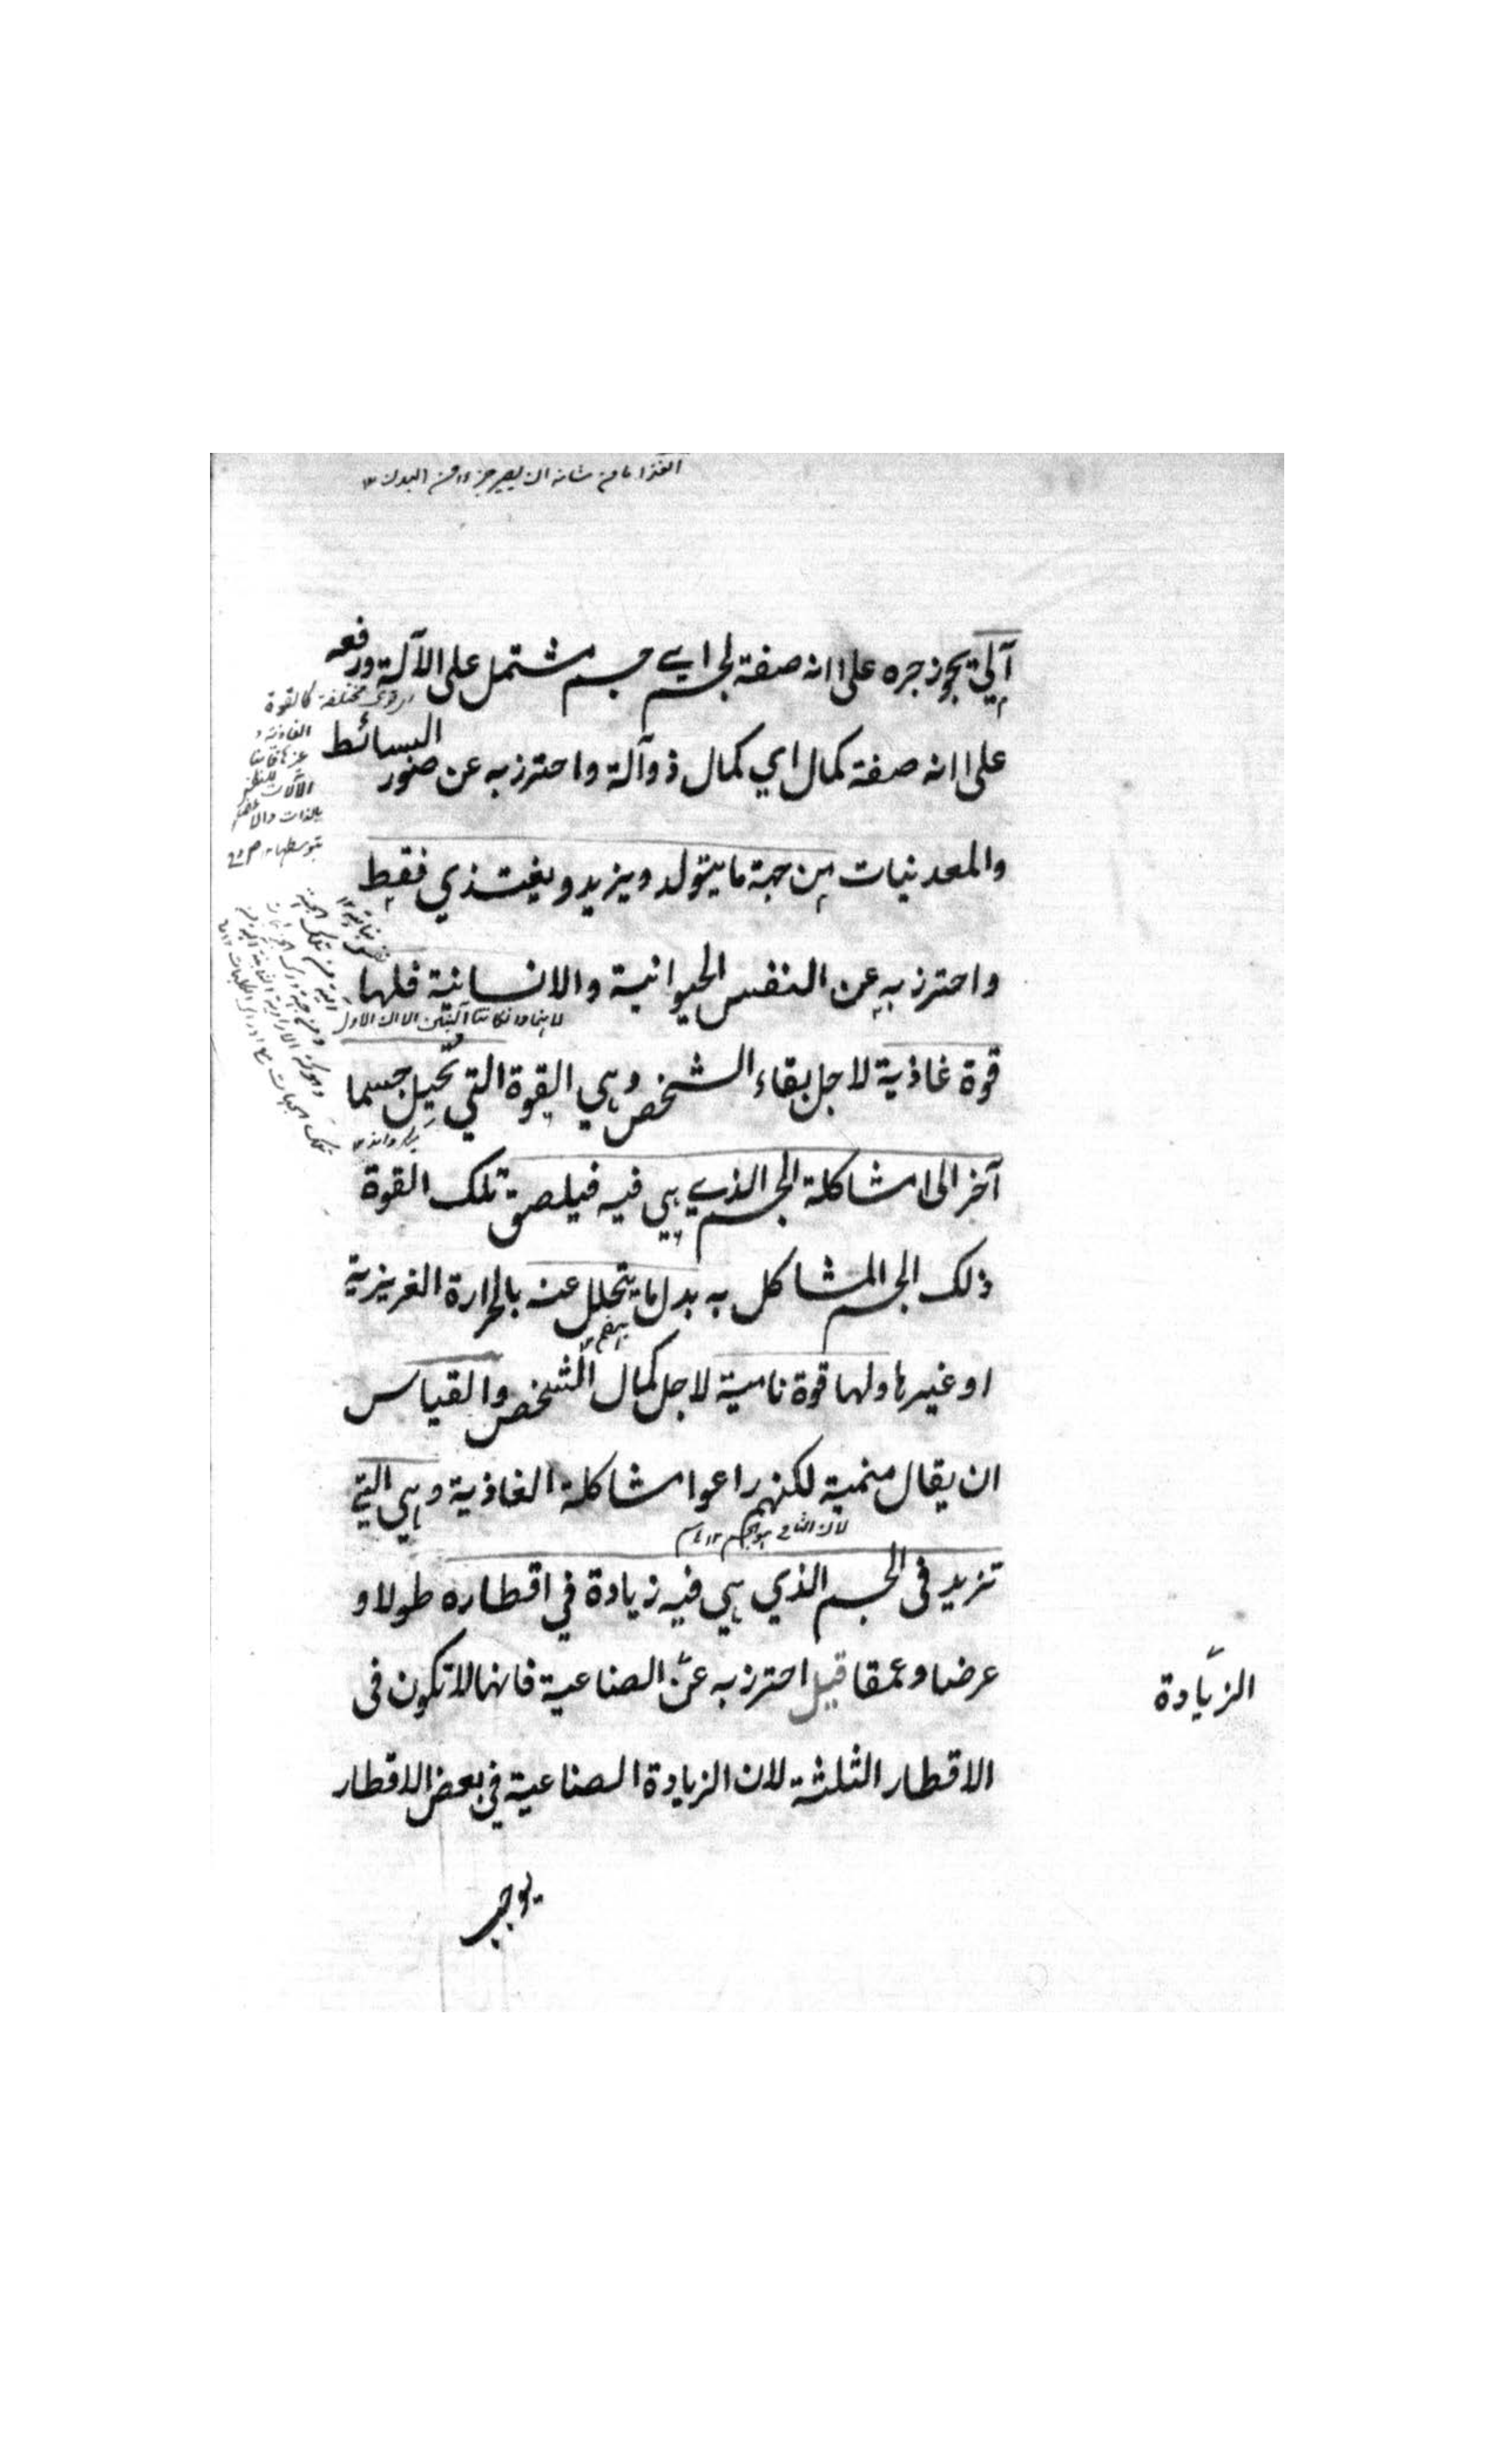 الغذا ما من شانه ان يصير جزءا من البدن ١٢
آلي يجوز جره على انه صفة لجسم اي جسم مشتمل على الآلة ورفعه
على انه صفة كمال اي كمال ذو آلة واحترز به عن صور البسائط
والمعدنيات من جهة ما يتولد ويزيد ويغتذي فقط
واحترز به عن النفس الحيوانية والانسانية فلها
قوة غاذية لاجل بقاء الشخص وهي القوة التي تحيل جسما
آخر الى مشاكلة الجسم الذي هي فيه فيلصق تلك القوة
ذلك الجسم المشاكل به بدل ما يتحلل عنه بالحرارة الغريزية
او غيرها ولها قوة نامية لاجل كمال الشخص والقياس
ان يقال منمية لكنهم راعوا مشاكلة الغاذية وهي التي
لان النامي هو الجسم ١٢
تزيد في الجسم الذي هي فيه زيادة في اقطاره طولا و
عرضا وعمقا قيل احترز به عن الصناعية فانها لا تكون في
الزيادة
الاقطار الثلثة لان الزيادة الصناعية في بعض الاقطار
يوجب
وقوى مختلفة كالقوة
الغاذية و
الآلات للنفس
بالذات والاعضاء
بتوسطها ١٢